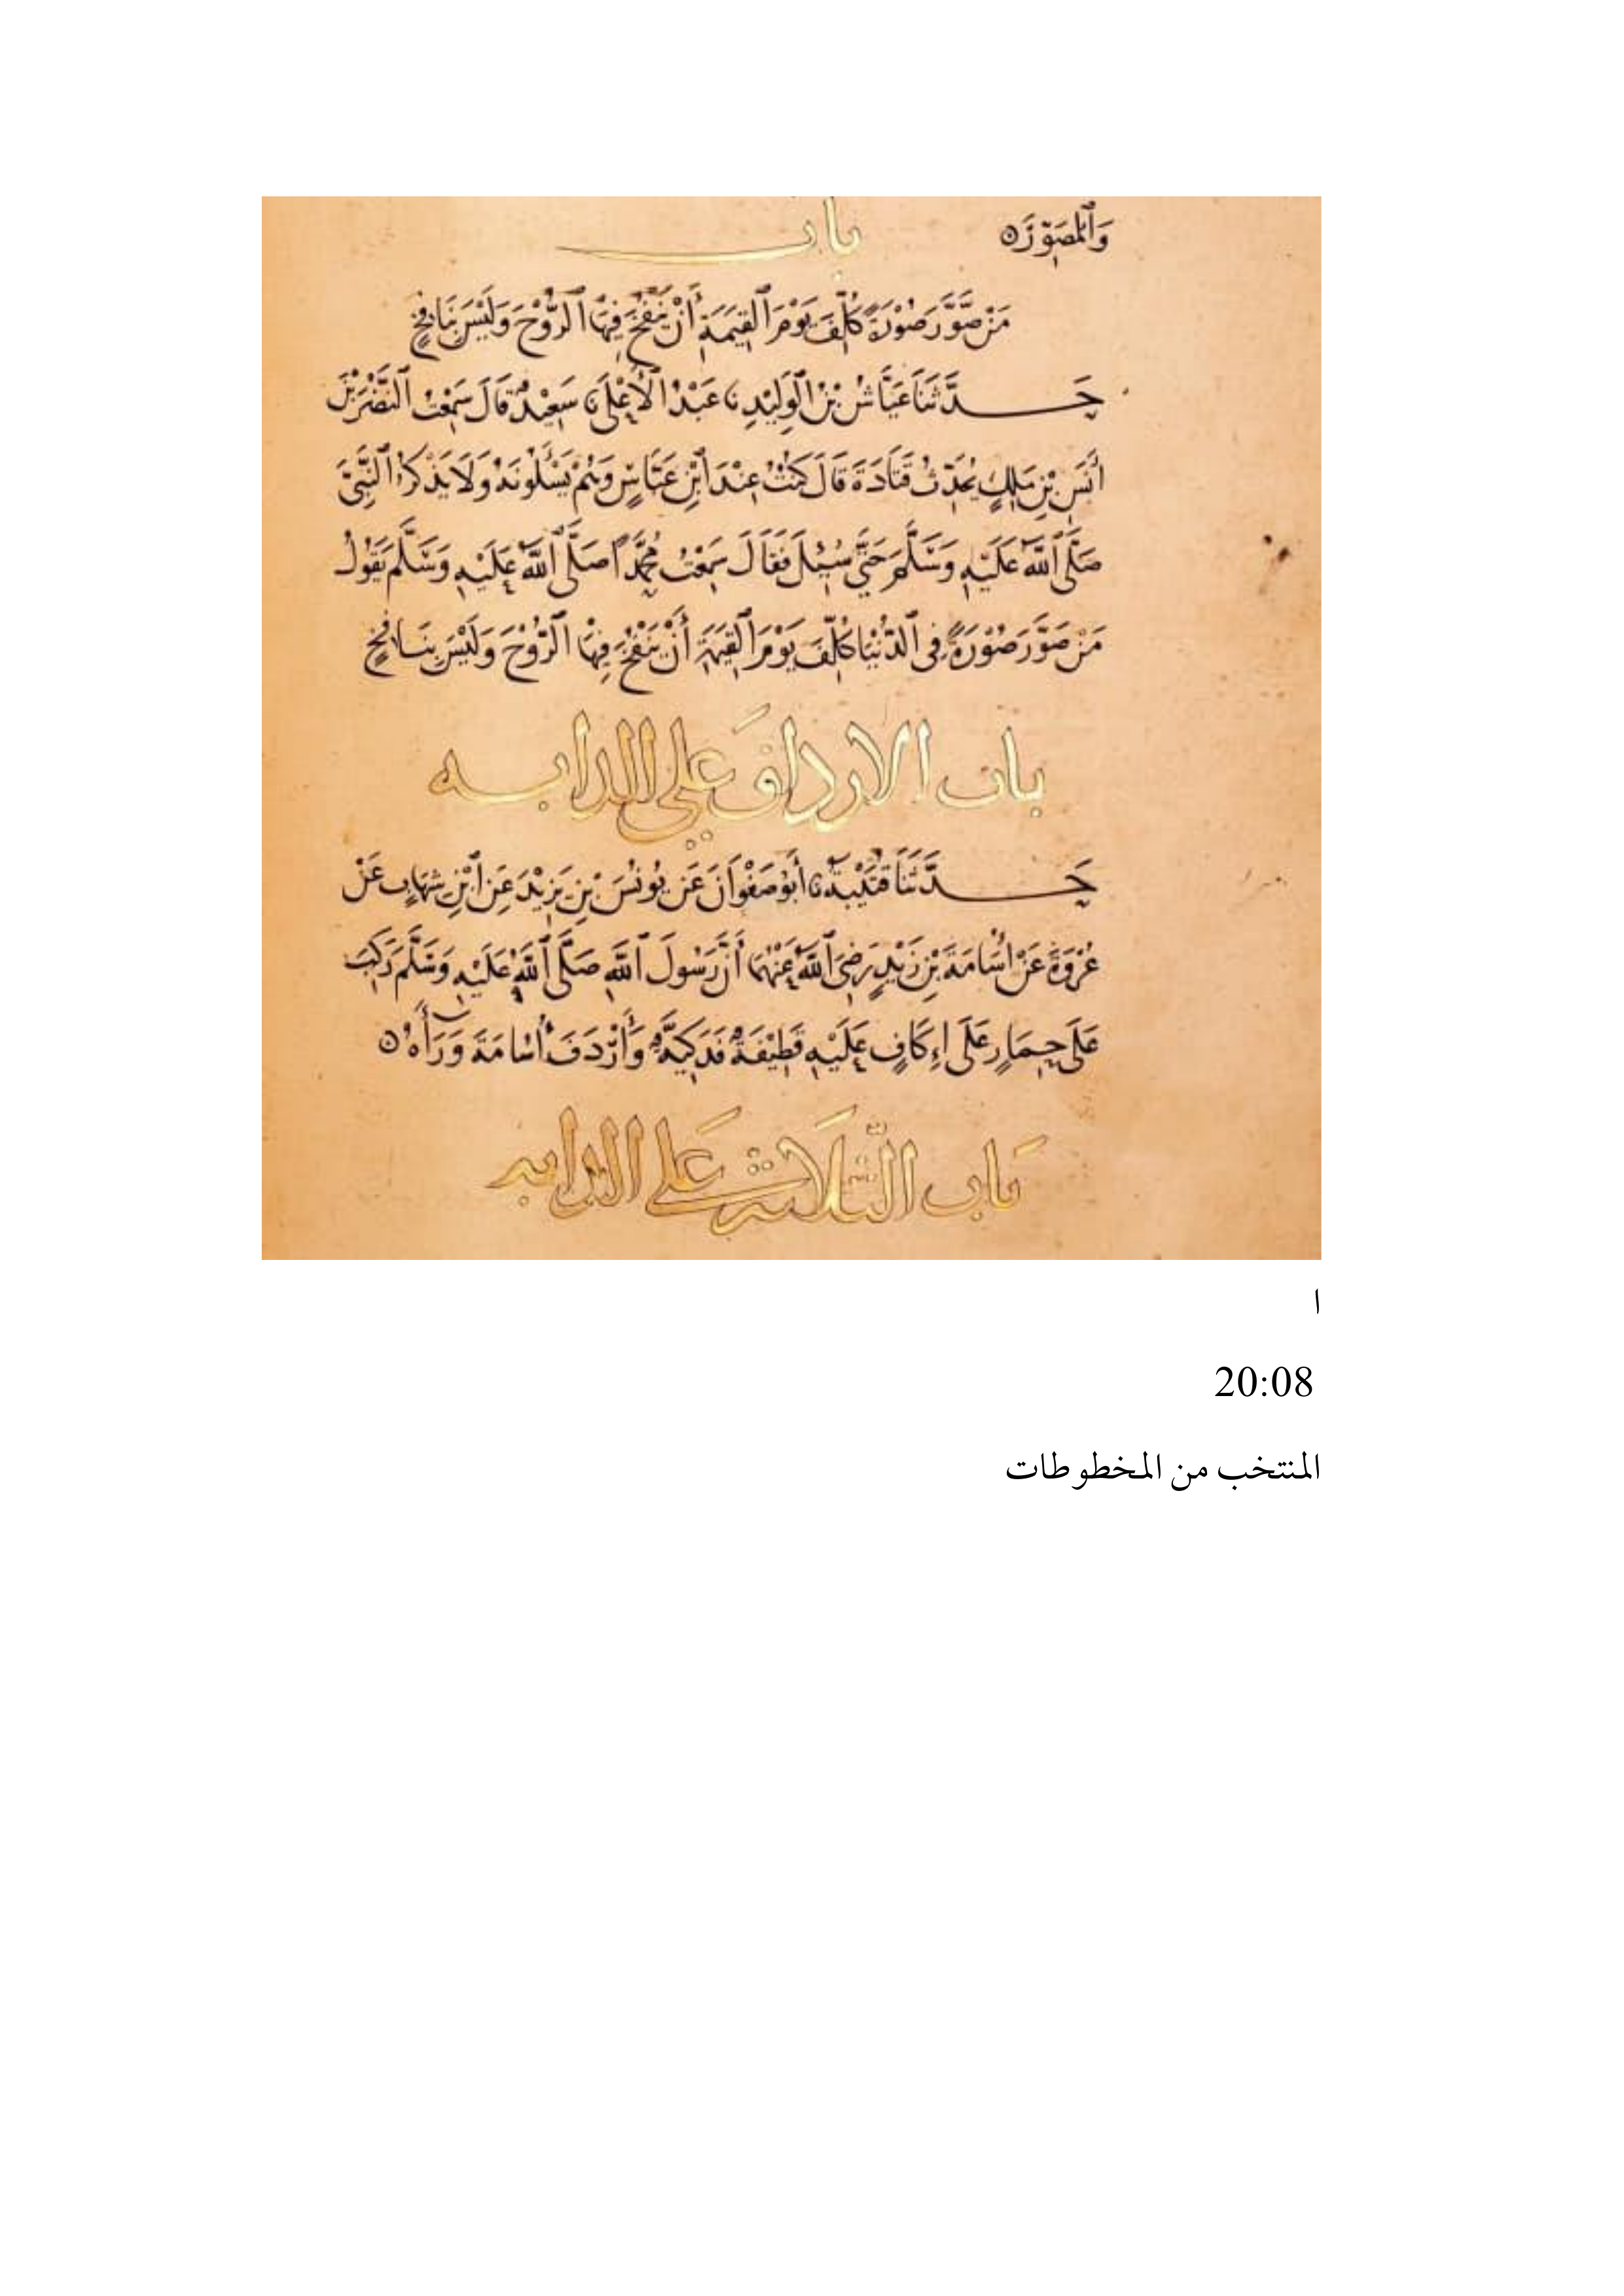 وَٱلْمُصَوِّرَ ه
باب
مَنْ صَوَّرَ صُوْرَةً كُلِّفَ يَوْمَ ٱلْقِيٰمَةِ أَنْ يَنْفُخَ فِيْهَا ٱلرُّوْحَ وَلَيْسَ بِنَافِخٍ
حَدَّثَنَا عَيَّاشُ بْنُ ٱلْوَلِيْدِ نا عَبْدُ ٱلْأَعْلَى نا سَعِيْدٌ قَالَ سَمِعْتُ ٱلنَّضْرَ بْنَ
أَنَسِ بْنِ مٰلِكٍ يُحَدِّثُ قَتَادَةَ قَالَ كُنْتُ عِنْدَ ٱبْنِ عَبَّاسٍ وَهُمْ يَسْأَلُونَهُ وَلَا يَذْكُرُ ٱلنَّبِيَّ
صَلَّى ٱللَّهُ عَلَيْهِ وَسَلَّمَ حَتَّى سُئِلَ فَقَالَ سَمِعْتُ مُحَمَّدًا صَلَّى ٱللَّهُ عَلَيْهِ وَسَلَّمَ يَقُوْلُ
مَنْ صَوَّرَ صُوْرَةً فِى ٱلدُّنْيَا كُلِّفَ يَوْمَ ٱلْقِيٰمَةِ أَنْ يَنْفُخَ فِيْهَا ٱلرُّوْحَ وَلَيْسَ بِنَافِخٍ
باب الارداف على الدابه
حَدَّثَنَا قُتَيْبَةُ نا أَبُو صَفْوَانَ عَنْ يُونُسَ بْنِ يَزِيْدَ عَنِ ٱبْنِ شِهَابٍ عَنْ
عُرْوَةَ عَنْ أُسَامَةَ بْنِ زَيْدٍ رَضِىَ ٱللَّهُ عَنْهُمَا أَنَّ رَسُولَ ٱللَّهِ صَلَّى ٱللَّهُ عَلَيْهِ وَسَلَّمَ رَكِبَ
عَلَى حِمَارٍ عَلَى إِكَافٍ عَلَيْهِ قَطِيْفَةٌ فَدَكِيَّةٌ وَأَرْدَفَ أُسَامَةَ وَرَاءَهُ ه
بَاب الثَّلَاثَة عَلَى الدابه
ا
20:08
المنتخب من المخطوطات